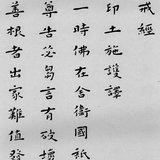 戒經
印土施護譯
一時佛在舍衛國祇
尊告苾芻言有破壞
善根者出家難值發